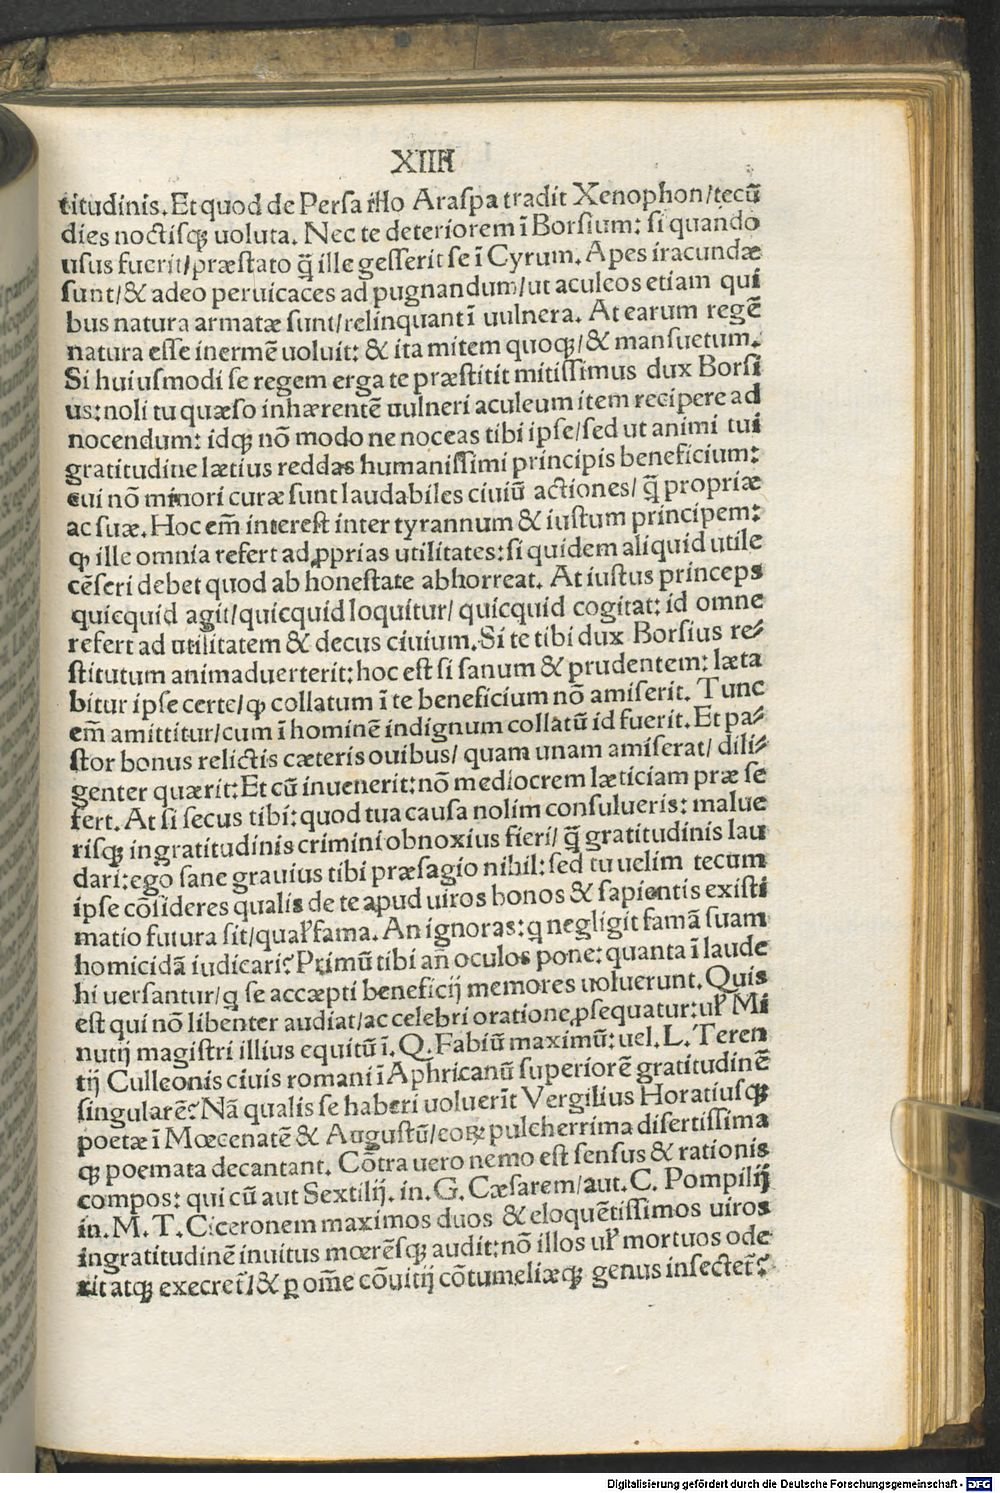 XIIII
titudinis. Et quod de Persa illo Araspa tradit Xenophon/tecū
dies noctisqꝫ uoluta. Nec te deteriorem ī Borsium: si quando
usus fuerit/præstato q̄ ille gesserit se ī Cyrum. Apes iracundæ
sunt/& adeo peruicaces ad pugnandum/ut aculeos etiam qui
bus natura armatæ sunt/relinquant ī uulnera. At earum regē
natura esse inermē uoluit: & ita mitem quoqꝫ/& mansuetum.
Si huiusmodi se regem erga te præstitit mitissimus dux Borsi
us: noli tu quæso inhærentē uulneri aculeum item recipere ad
nocendum: idqꝫ nō modo ne noceas tibi ipse/sed ut animi tui
gratitudine lætius reddas humanissimi principis beneficium:
cui nō minori curæ sunt laudabiles ciuiū actiones/ q̄ propriæ
ac suæ. Hoc em̄ interest inter tyrannum & iustum principem:
ꝙ ille omnia refert ad ꝓprias utilitates: siquidem aliquid utile
cēseri debet quod ab honestate abhorreat. At iustus princeps
quicquid agit/quicquid loquitur/ quicquid cogitat: id omne
refert ad utilitatem & decus ciuium. Si te tibi dux Borsius re⸗
stitutum animaduerterit: hoc est si sanum & prudentem: læta
bitur ipse certe/ꝙ collatum ī te beneficium nō amiserit. Tunc
em̄ amittitur/cum ī hominē indignum collatū id fuerit. Et pa⸗
stor bonus relictis cæteris ouibus/ quam unam amiserat/ dili⸗
genter quærit: Et cū inuenerit: nō mediocrem læticiam præ se
fert. At si secus tibi: quod tua causa nolim consulueris: malue
risqꝫ ingratitudinis crimini obnoxius fieri/ q̄ gratitudinis lau
dari: ego sane grauius tibi præsagio nihil: sed tu uelim tecum
ipse cōsideres qualis de te apud uiros bonos & sapientis existi
matio futura sit/qualꝭ fama. An ignoras: q negligit famā suam
homicidā iudicari? Primū tibi an̄ oculos pone: quanta ī laude
hi uersantur/q se accæpti beneficij memores uoluerunt. Quis
est qui nō libenter audiat/ac celebri oratione ꝓsequatur: ulꝭ Mi
nutij magistri illius equitū ī. Q. Fabiū maximū: uel. L. Teren
tij Culleonis ciuis romani ī Aphricanū superiorē gratitudinē
singularē? Nā qualis se haberi uoluerīt Vergilius Horatiusqꝫ
poetæ ī Mœcenatē & Augustū/eoꝝ pulcherrima disertissima
qꝫ poemata decantant. Cōtra uero nemo est sensus & rationis
compos: qui cū aut Sextilij. in. G. Cæsarem/aut. C. Pompilij
in. M. T. Ciceronem maximos duos & eloquētissimos uiros
ingratitudinē inuitus mœrēsqꝫ audit: nō illos ulꝭ mortuos ode
rit atqꝫ execret̄/& ꝑ om̄e cōuitij cōtumeliæqꝫ genus insectet̄?
Digitalisierung gefördert durch die Deutsche Forschungsgemeinschaft - DFG